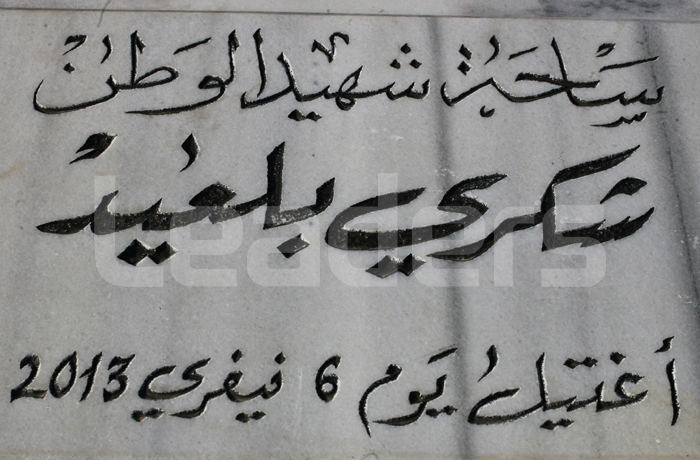 ساحة شهيد الوطن
شكري بلعيد
Leaders
أغتيل يوم 6 فيفري 2013